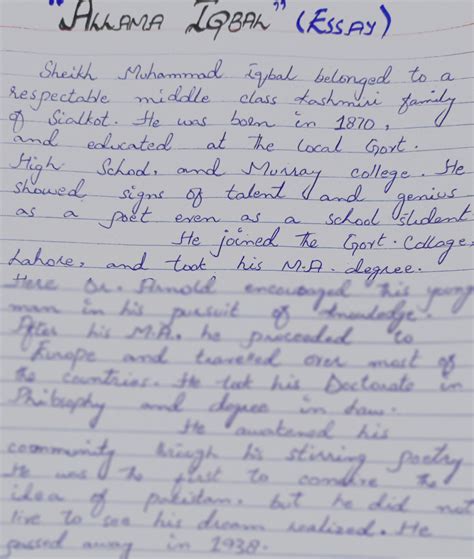 "ALLAMA IQBAL" (ESSAY)
Sheikh Muhammad Iqbal belonged to a
respectable middle class Kashmiri family
of Sialkot. He was born in 1870,
and educated at the local Govt.
High School, and Murray college. He
showed signs of talent and genius
as a poet even as a school student
He joined the Govt. College,
Lahore, and took his M.A. degree.
Here Dr. Arnold encouraged this young
man in his pursuit of knowledge.
After his M.A. he proceeded to
Europe and traveled over most of
the countries. He took his Doctorate in
Philosophy and degree in law.
He awakened his
community through his stirring poetry
He was the first to the
idea of pakistan, but he did not
live to see his dream realized. He
passed away in 1938.